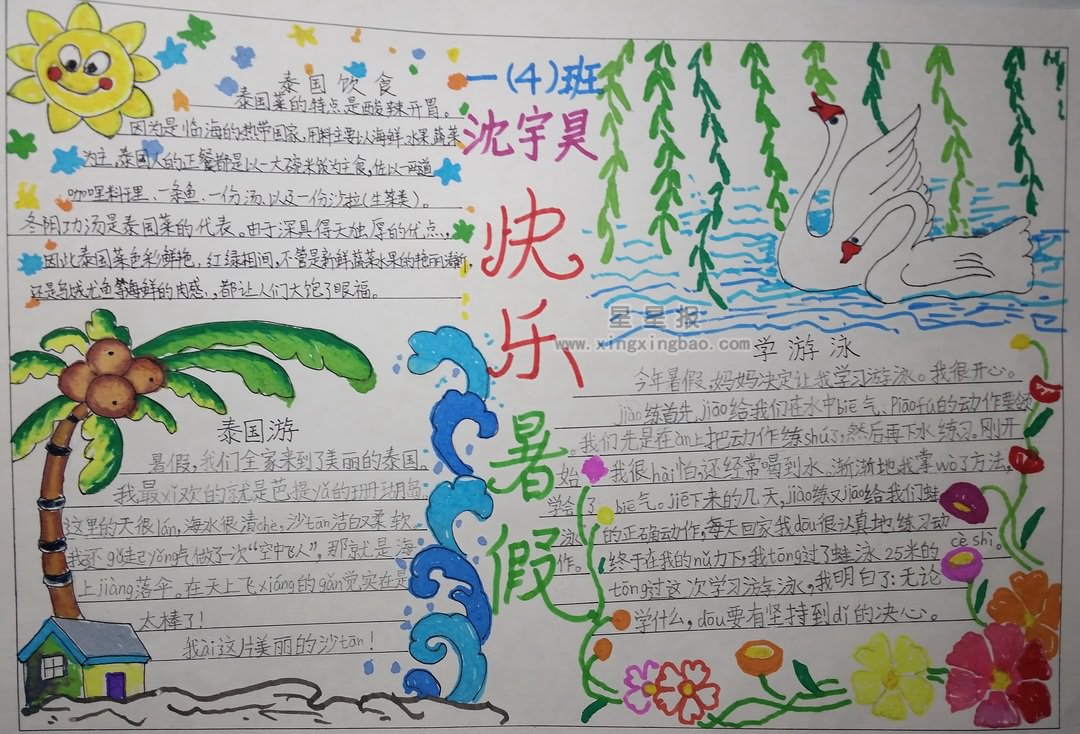 泰国饮食
泰国菜的特点是酸辣开胃。
因为是临海的热带国家,用料主要以海鲜水果蔬菜
为主,泰国人的正餐都是以一大碗米饭为主食,佐以一两道
咖哩料理、一条鱼、一份汤,以及一份沙拉(生菜类)。
冬阴功汤是泰国菜的代表。由于深具得天独厚的优点,
因此泰国菜色彩鲜艳,红绿相间,不管是新鲜蔬菜水果的艳丽清新,
还是乌贼尤鱼等海鲜的肉感,都让人们大饱了眼福。
一(4)班
沈宇昊
快乐暑假
星星报
www.xingxingbao.com
泰国游
暑假,我们全家来到了美丽的泰国。
我最xǐ欢的就是芭提yǎ的珊瑚岛
这里的天很lán,海水很清chè,沙tān洁白又柔软
我还gǔ起yǒng气做了一次“空中飞人”,那就是海
上jiàng落伞。在天上飞xiáng的gǎn觉实在是
太棒了!
我ài这片美丽的沙tān!
学游泳
今年暑假,妈妈决定让我学习游泳。我很开心。
jiào练首先jiāo给我们在水中biē气、piāofú的动作要领
我们先是在àn上把动作练shú了,然后再下水练习。刚开
始我很hài怕,还经常喝到水,渐渐地我掌wò了方法,
学会了biē气。jiē下来的几天,jiào练又jiāo给我们蛙
泳的正确动作,每天回家我dōu很认真地练习动
作。终于在我的nǔ力下,我tōng过了蛙泳25米的cè shì。
tōng过这次学习游泳,我明白了:无论
学什么,dōu要有坚持到dǐ的决心。